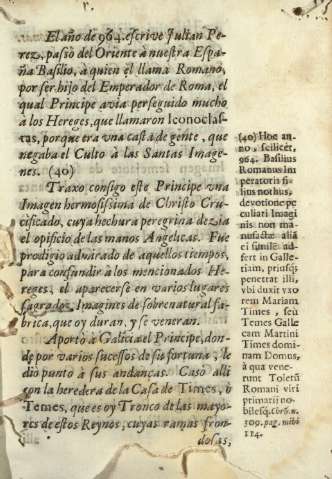 El año de 964. escrive Julian Pe-
rez, passò del Oriente à nuestra Espa-
ña Basilio, à quien èl llama Romano,
por ser hijo del Emperador de Roma, el
qual Principe avia perseguido mucho
à los Hereges, que llamaron Iconoclas-
tas, porque era vna casta de gente, que
negaba el Culto à las Santas Image-
nes. (40)
Traxo consigo este Principe vna
Imagen hermosissima de Christo Cru-
cificado, cuya hechura peregrina dezia
el opificio de las manos Angelicas. Fue
prodigio admirado de aquellos tiempos,
para confundir à los mencionados He-
reges, el aparecerse en varios lugares
sagrados, Imagines de sobrenatural fa-
brica, que oy duran, y se veneran.
Aportò à Galicia el Principe, don-
de por varios sucessos de su fortuna, le
diò punto à sus andanças. Casò alli
con la heredera de la Casa de Times, ò
Temes, que es oy Tronco de las mayo-
res de estos Reynos, cuyas ramas fron-
dosas,
(40) Hoc an-
no, scilicet,
964. Basilius
Romanus Im
peratoris fi-
lius nothus,
devotione pe
culiari Imagi
nis non ma-
nufactæ aliã
ei similẽ ad-
fert in Galle-
riam, priusq;
penetrat illi,
vbi duxi vxo
rem Mariam
Times, seù
Temes Galle
cam Martini
Times domi-
nam Domus,
à qua vene-
runt Toletũ
Romani viri
primarii no-
bilesq; Chrõ. n.
509. pag. mihi
114.